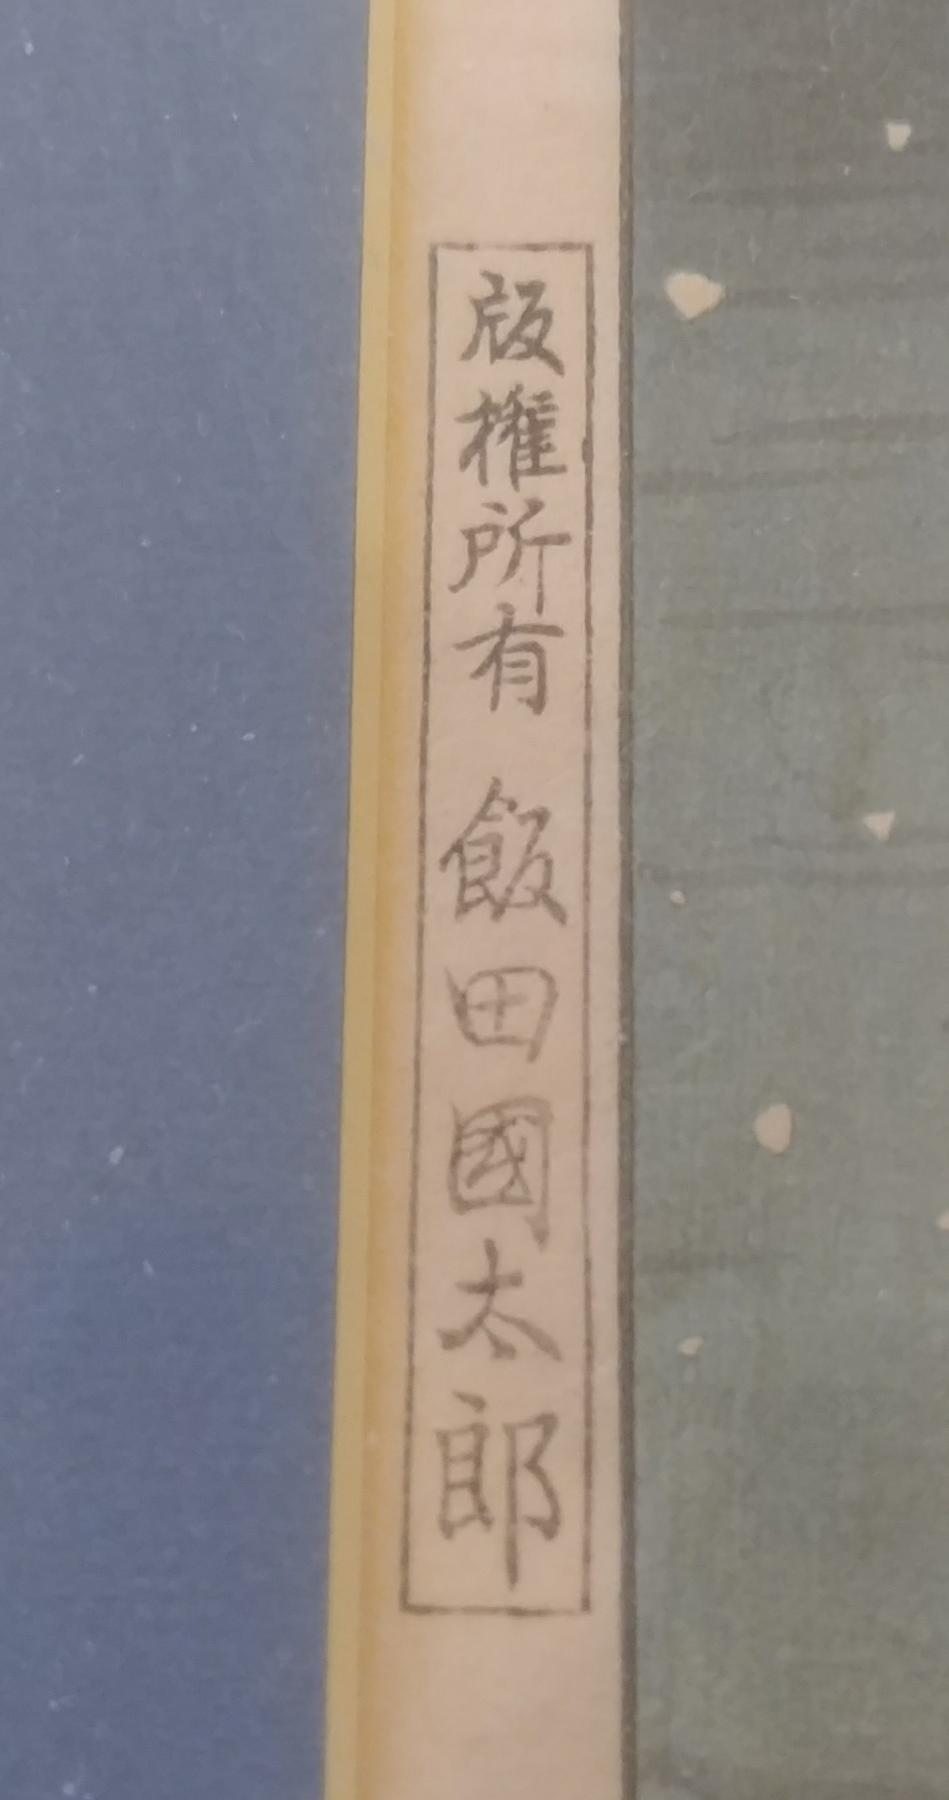 版權所有 飯田國太郎